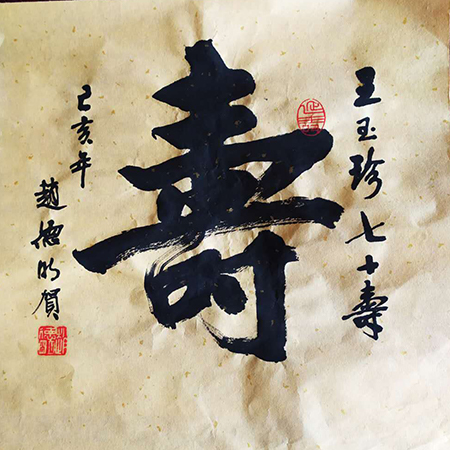 王玉珍七十壽
壽
己亥年
趙德明賀